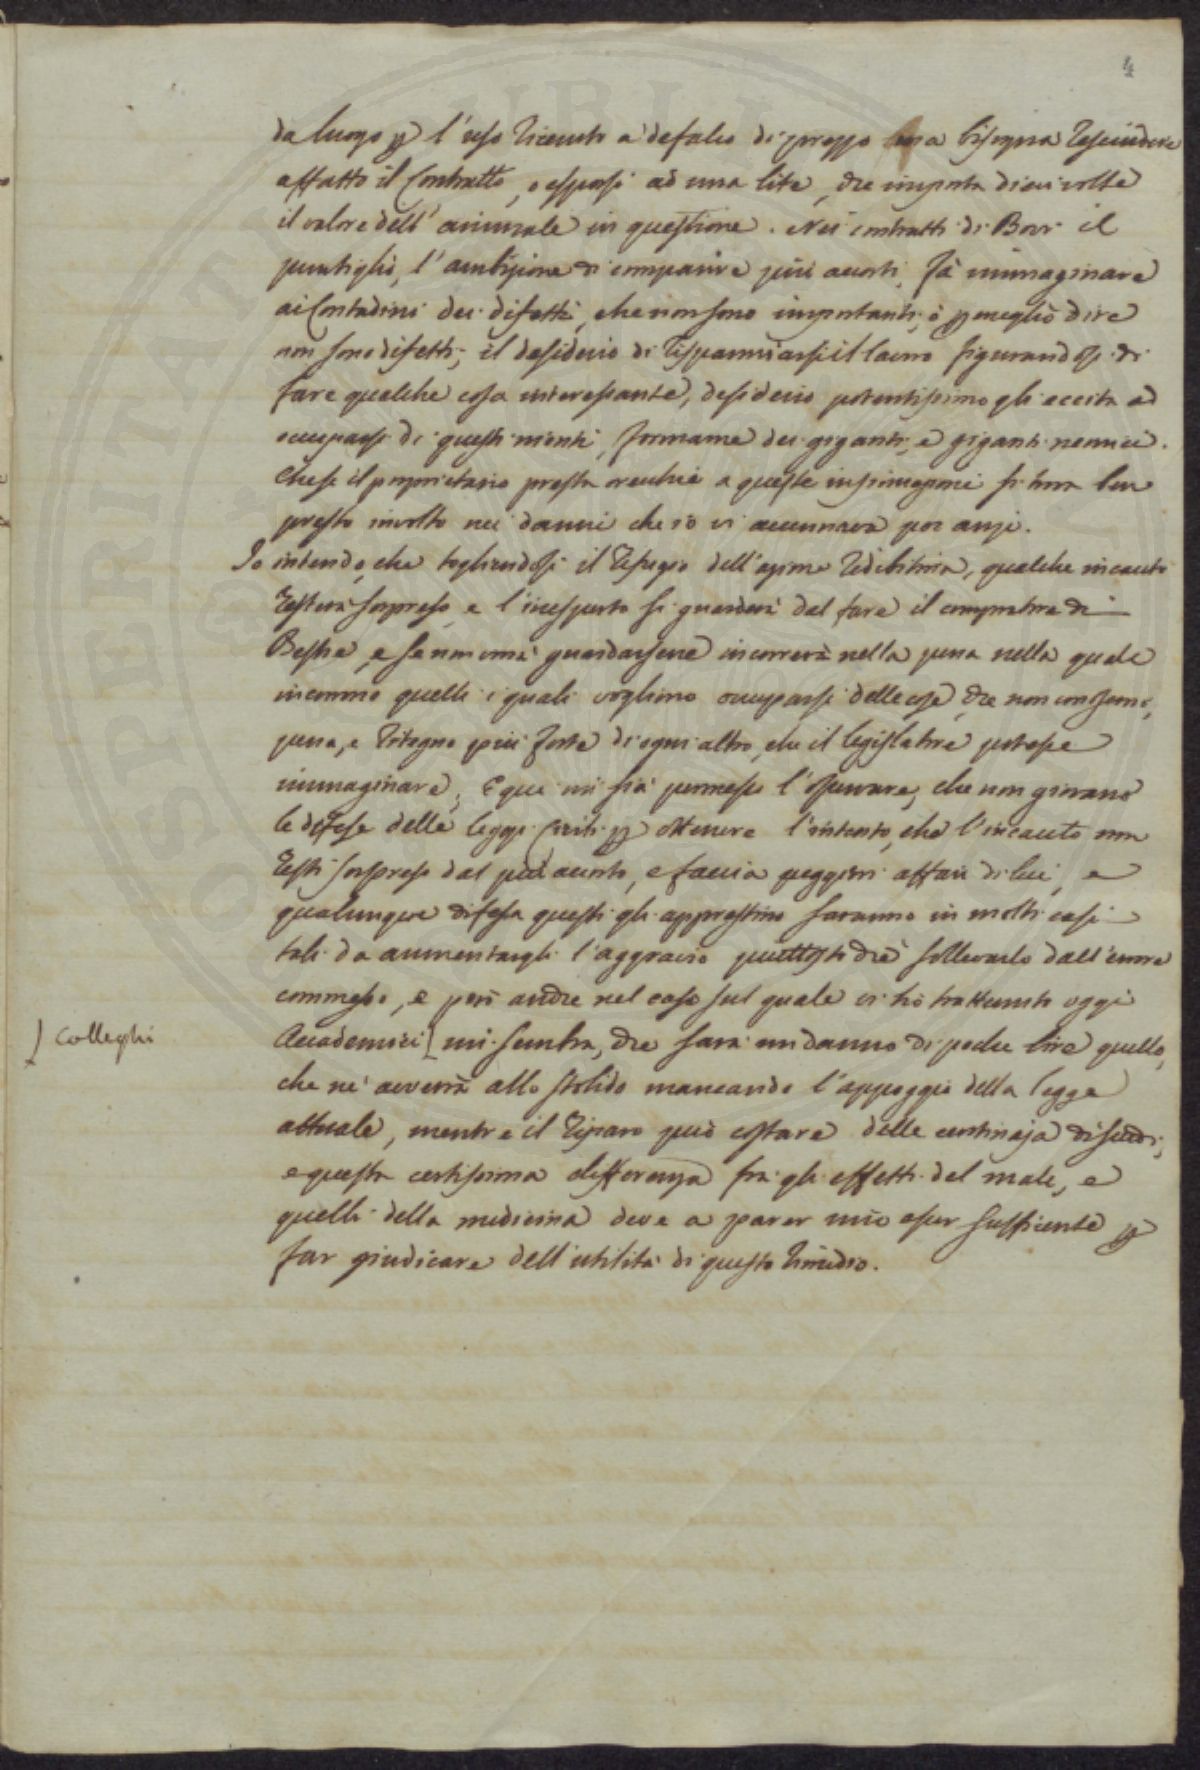 4
da luogo p l'uso ricevuto a defalco di prezzo ma bisogna rescindere
affatto il Contratto, o esporsi ad una lite, che importa dieci volte
il valore dell'animale in questione. Nei contratti di Bovi il
puntiglio, l'ambizione di comparire più acorti, fà immaginare
ai Contadini dei difetti, che non sono importanti, ò p meglio dire
non sono difetti; il desiderio di risparmiarsi il lavoro figurandosi di
fare qualche cosa interessante, desiderio potentissimo gli eccita ad
occuparsi di questi nienti, formarne dei giganti, e giganti nemici.
Che se il proprietario presta orecchie a queste insinuazioni si trova ben
presto involto nei danni che io vi accennava poc'anzi.
Io intendo, che togliendosi il refugio dell'azione redibitoria, qualche incauto
resterà sorpreso, e l'inesperto si guarderà dal fare il compratore di
Bestie, e se non vorrà guardarsene incorrerà nella pena nella quale
incorrono quelli i quali vogliono occuparsi delle cose, che non conoscono,
pena, e ritegno più forte di ogni altro, che il legislatore potesse
immaginare; E qui mi sia permesso l'osservare, che non giovano
le difese delle leggi Civili p ottenere l'intento, che l'incauto non
resti sorpreso dal più acorto, e faccia peggiori affari di lui, e
qualunque difesa questi gli apprestino saranno in molti casi
tali da aumentargli l'aggravio piuttosto che sollevarlo dall'errore
commesso, e però anche nel caso sul quale vi hò trattenuto oggi
Accademici [ mi sembra, che sarà un danno di poche lire quello,
[ Colleghi
che ne avverrà allo stolido mancando l'appoggio della legge
attuale, mentre il riparo può costare delle centinaja di scudi;
e questa certissima differenza fra gli effetti del male, e
quelli della medicina deve a parer mio esser sufficiente p
far giudicare dell'utilità di questo rimedio.